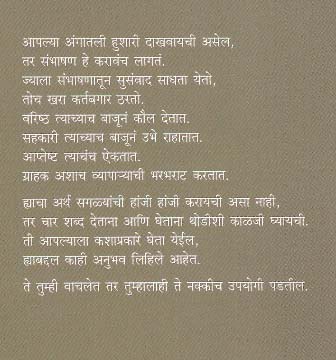 आपल्या अंगातली हुशारी दाखवायची असेल,
तर संभाषण हे करावंच लागतं.
ज्याला संभाषणातून सुसंवाद साधता येतो,
तोच खरा कर्तबगार ठरतो.
वरिष्ठ त्याच्याच बाजूनं कौल देतात.
सहकारी त्याच्याच बाजूनं उभे राहातात.
आप्तेष्ट त्याचंच ऐकतात.
ग्राहक अशाच व्यापाऱ्याची भरभराट करतात.
ह्याचा अर्थ सगळ्यांची हांजी हांजी करायची असा नाही,
तर चार शब्द देताना आणि घेताना थोडीशी काळजी घ्यायची.
ती आपल्याला कशाप्रकारे घेता येईल,
ह्याबद्दल काही अनुभव लिहिले आहेत.
ते तुम्ही वाचलेत तर तुम्हालाही ते नक्कीच उपयोगी पडतील.